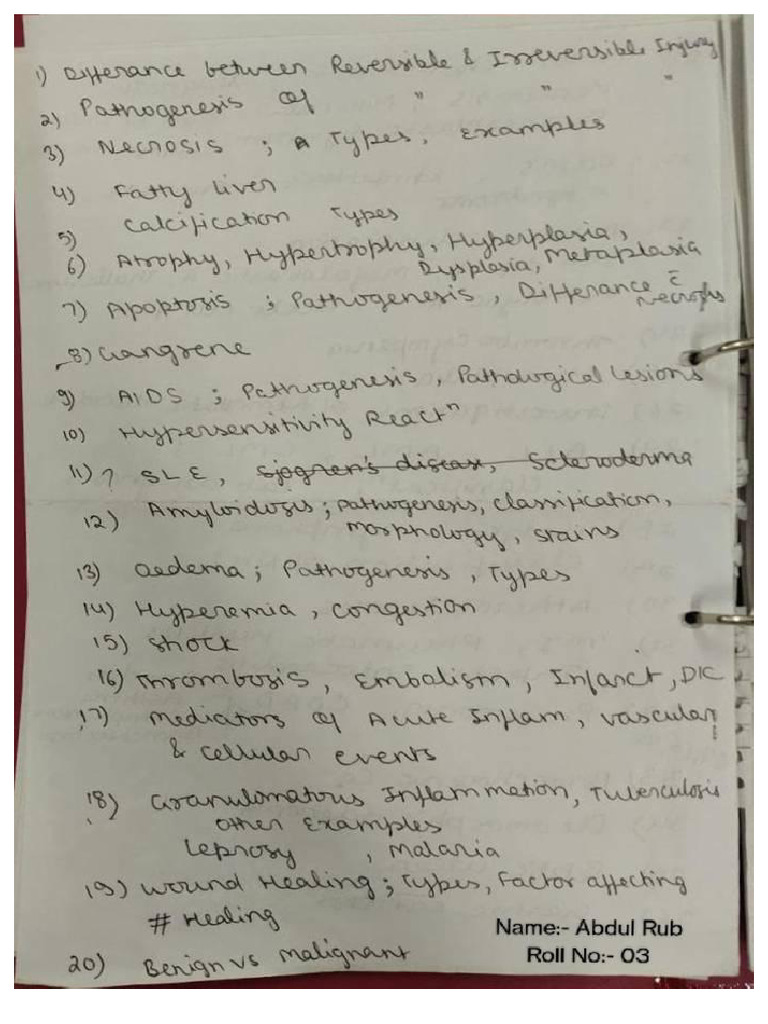 1) Differance between Reversible & Irreversible Injury
2) Pathogenesis of " " "
3) Necrosis ; Types, Examples
4) Fatty liver
5) Calcification Types
6) Atrophy, Hypertrophy, Hyperplasia,
Dysplasia, Metaplasia
7) Apoptosis ; Pathogenesis, Differance c̄
Necrosis
8) Gangrene
9) AIDS ; Pathogenesis, Pathological Lesions
10) Hypersensitivity Reactⁿ
11) ? SLE, Sjogren's disease, Scleroderma
12) Amyloidosis ; Pathogenesis, classification,
Morphology, stains
13) Oedema ; Pathogenesis, Types
14) Hyperemia, congestion
15) Shock
16) Thrombosis, Embalism, Infarct, DIC
17) Mediators of Acute Inflam, vascular
& cellular events
18) Granulomatous Inflammation, Tuberculosis
other Examples
Leprosy , Malaria
19) Wound Healing ; Types, Factor affecting
# Healing
20) Benign vs Malignant
Name:- Abdul Rub
Roll No:- 03